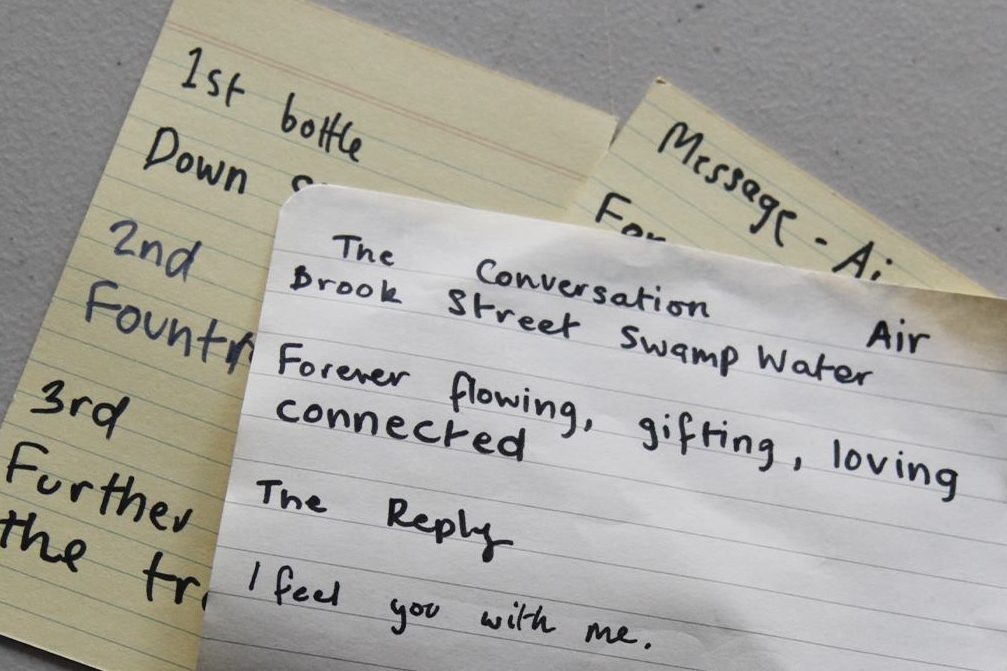 1st bottle
Down
2nd
3rd
Further
the
Message -
The Conversation Air
Brook Street Swamp Water
Forever flowing, gifting, loving
connected
The Reply
I feel you with me.